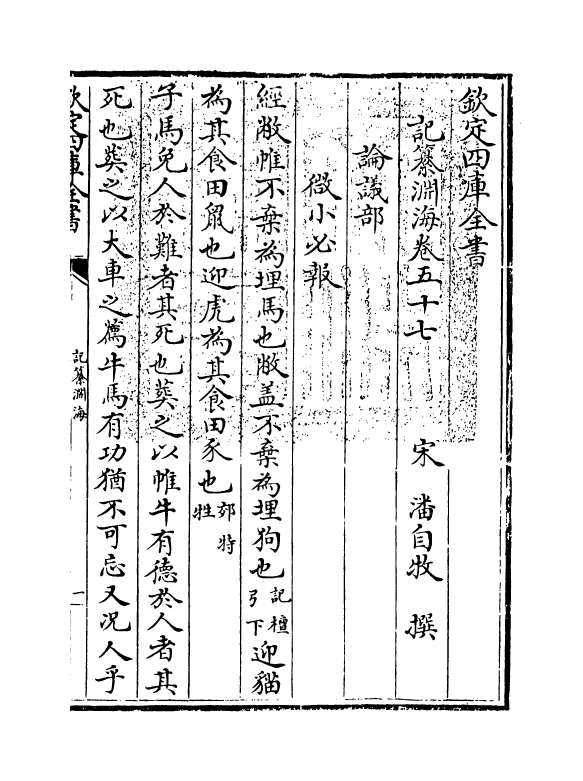 欽定四庫全書
記纂淵海卷五十七
宋 潘自牧 撰
論議部
微小必報
經敝帷不棄為埋馬也敝盖不棄為埋狗也記檀弓下迎貓
為其食田鼠也迎虎為其食田豕也郊特牲
子馬免人於難者其死也葬之以帷牛有德於人者其
死也葬之以大車之薦牛馬有功猶不可忘又况人乎
欽定四庫全書
記纂淵海
一